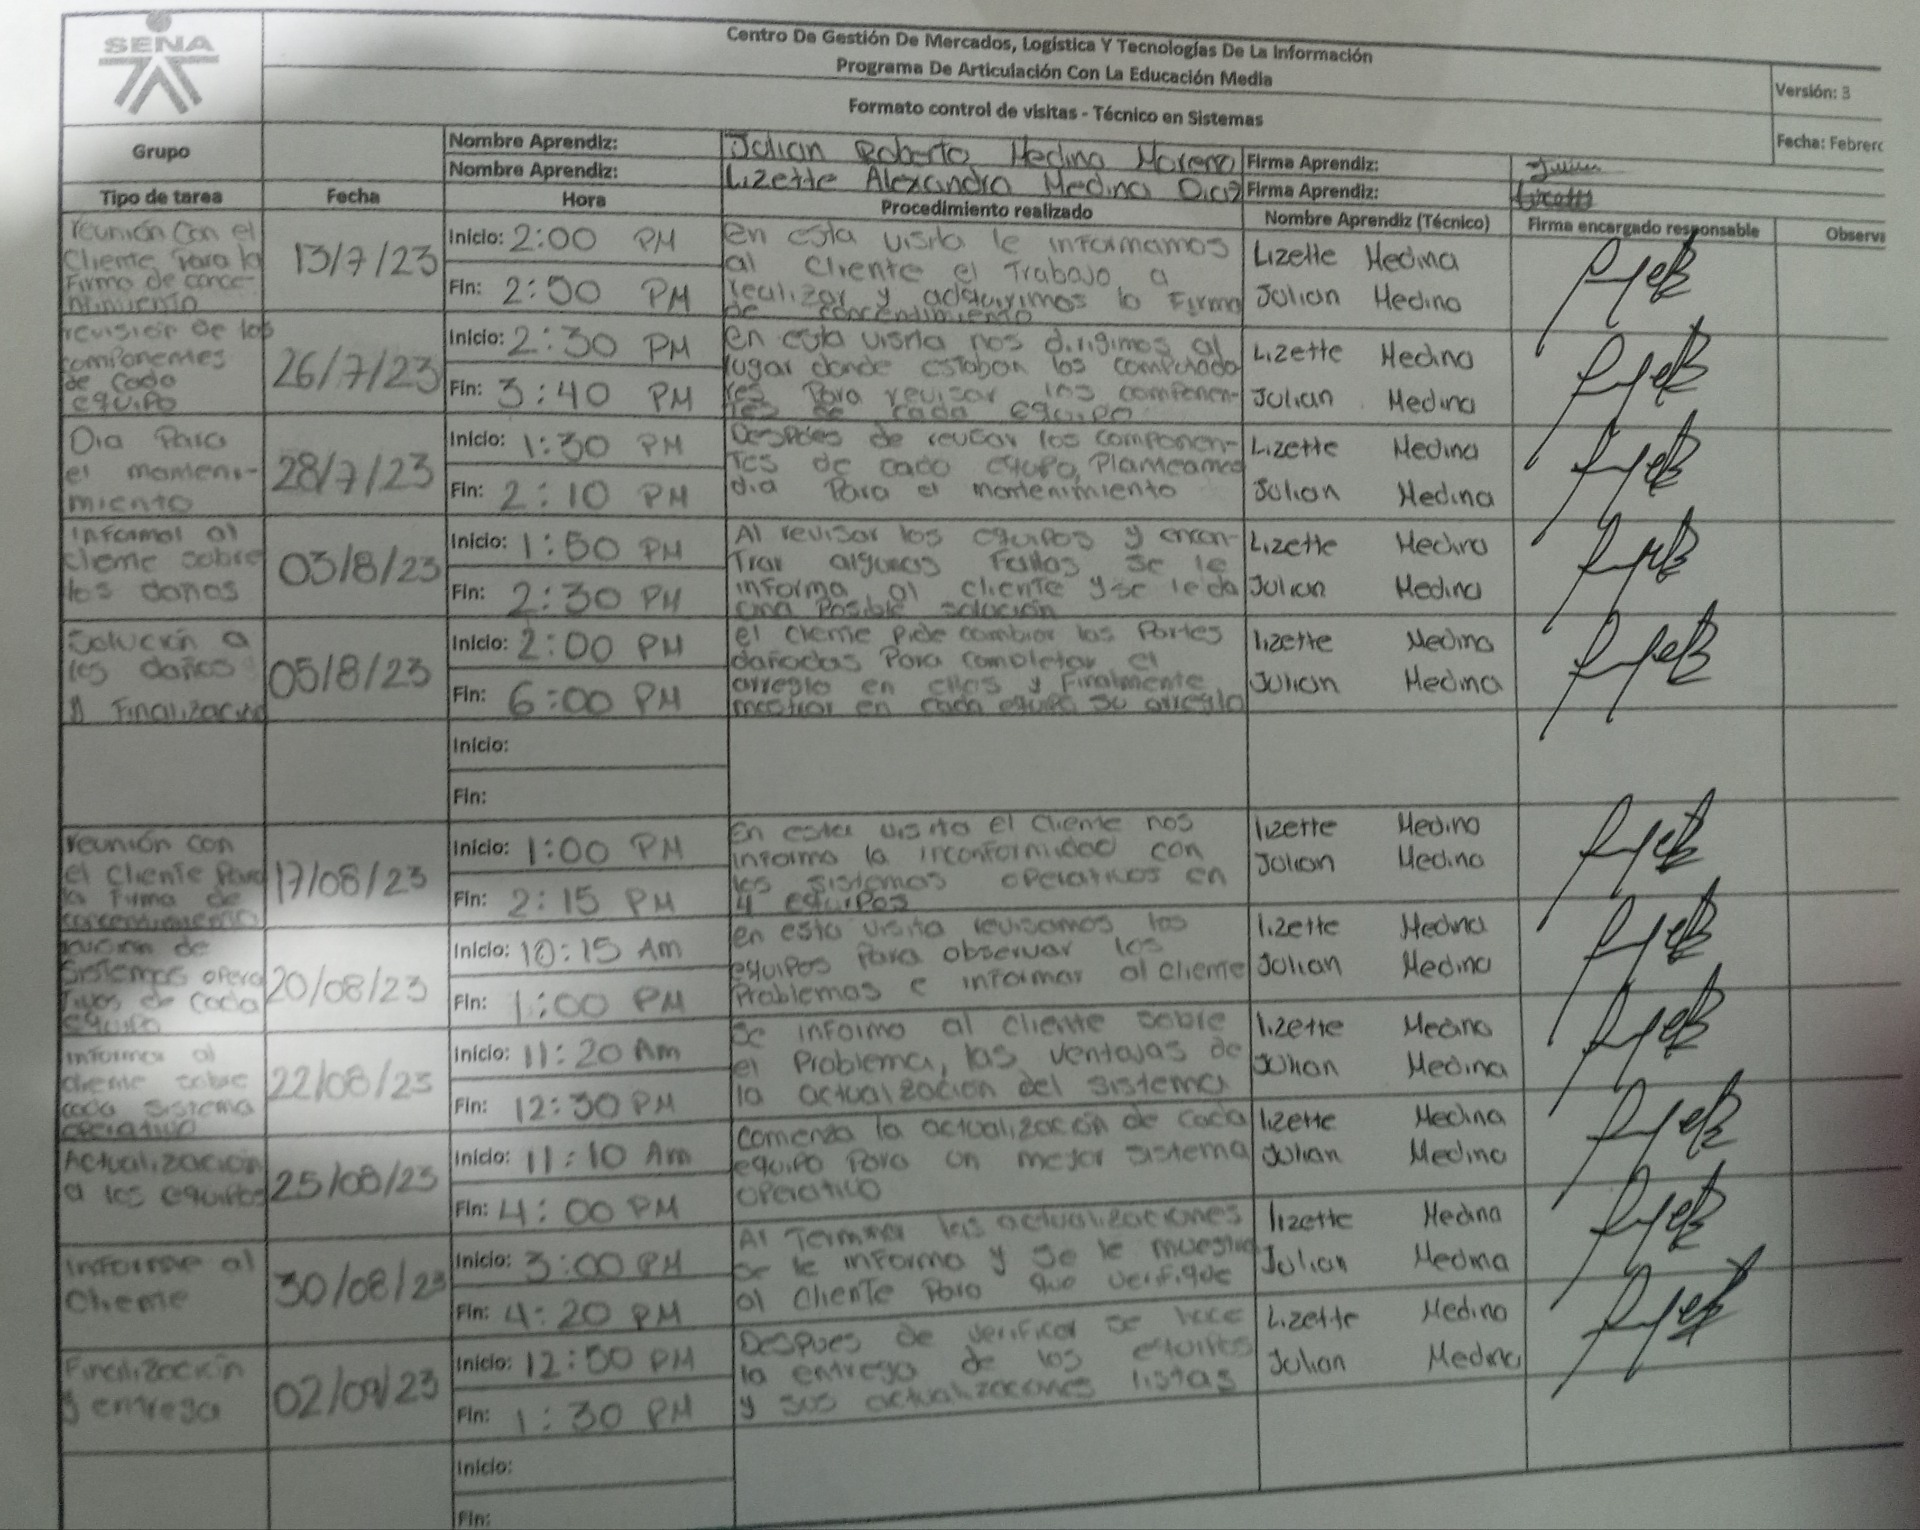 SENA
Centro De Gestión De Mercados, Logística Y Tecnologías De La Información
Programa De Articulación Con La Educación Media
Formato control de visitas - Técnico en Sistemas
Versión: 3
Fecha: Febrero
Grupo
Nombre Aprendiz: Julian Roberto Medina Moreno Firma Aprendiz:
Nombre Aprendiz: Lizette Alexandra Medina Firma Aprendiz:
Tipo de tarea Fecha Hora Procedimiento realizado Nombre Aprendiz (Técnico) Firma encargado responsable Observa
reunión con el
Cliente Para la
Firma de conce-
ntimiento
13/7/23
Inicio: 2:00 PM
Fin: 2:50 PM
en esta visita le informamos
al cliente el Trabajo a
realizar y adquirimos la Firma
de concentimiento
Lizette Medina
Julian Medina
revision de los
componentes
de cada
equipo
26/7/23
Inicio: 2:30 PM
Fin: 3:40 PM
en esta visita nos dirigimos al
lugar donde estaban los computado
res Para revisar los componen-
tes de cada equipo
Lizette Medina
Julian Medina
Dia Para
el manteni-
miento
28/7/23
Inicio: 1:30 PM
Fin: 2:10 PM
Despues de revisar los componen-
tes de cada equipo, Planteamos
dia Para el mantenimiento
Lizette Medina
Julian Medina
Informar al
cliente sobre
los daños
03/8/23
Inicio: 1:50 PM
Fin: 2:30 PM
Al revisar los equipos y encon-
trar algunas Fallas se le
informa al cliente y se le da
una Posible solución
Lizette Medina
Julian Medina
Solución a
los daños
y Finalización
05/8/23
Inicio: 2:00 PM
Fin: 6:00 PM
el cliente pide cambiar las Partes
dañadas Para completar el
arreglo en ellos y Finalmente
mostrar en cada equipo su arreglo
lizette Medina
Julian Medina
Inicio:
Fin:
reunión con
el cliente Para
la Firma de
concentimiento
17/08/23
Inicio: 1:00 PM
Fin: 2:15 PM
En esta visita el cliente nos
informa la inconformidad con
los sistemas operativos en
4 equipos
lizette Medina
Julian Medina
de
sistemas opera
tivos de cada
equipo
20/08/23
Inicio: 10:15 Am
Fin: 1:00 PM
en esta visita revisamos los
equipos Para observar los
Problemas e informar al cliente
lizette Medina
Julian Medina
informar al
cliente sobre
cada sistema
operativo
22/08/23
Inicio: 11:20 Am
Fin: 12:30 PM
Se informo al cliente sobre
el Problema, las ventajas de
la actualización del sistema
lizette Medina
Julian Medina
Actualización
a los equipos
25/08/23
Inicio: 11:10 Am
Fin: 4:00 PM
comenza la actualización de cada
equipo Para un mejor sistema
operativo
lizette Medina
Julian Medina
informe al
Cliente
30/08/23
Inicio: 3:00 PM
Fin: 4:20 PM
Al Terminar las actualizaciones
se le informa y se le muestra
al cliente Para que verifique
lizette Medina
Julian Medina
Finalización
y entrega
02/09/23
Inicio: 12:50 PM
Fin: 1:30 PM
Despues de verificar se hace
la entrega de los equipos
y sus actualizaciones listas
Lizette Medina
Julian Medina
Inicio:
Fin: